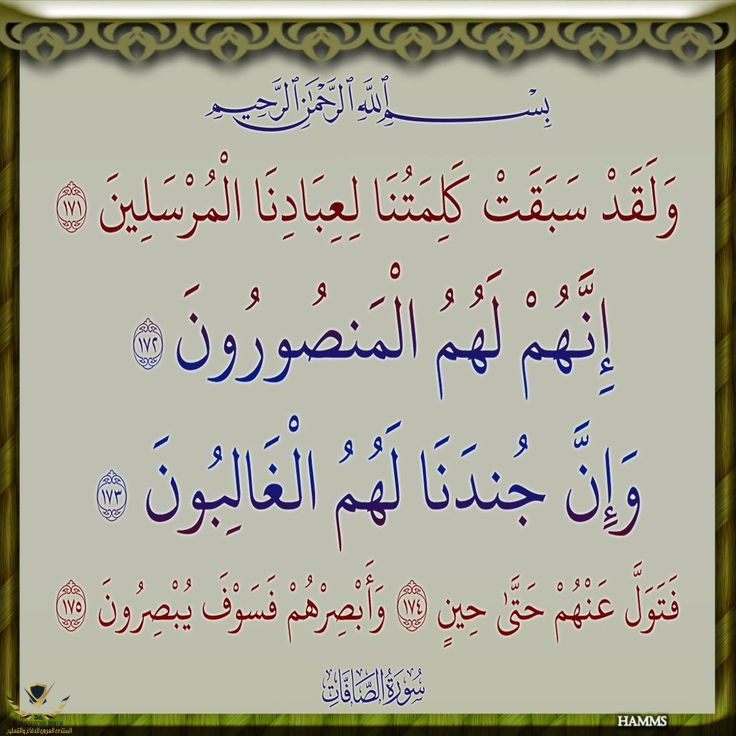 بِسْمِ ٱللَّهِ ٱلرَّحْمَٰنِ ٱلرَّحِيمِ
وَلَقَدْ سَبَقَتْ كَلِمَتُنَا لِعِبَادِنَا الْمُرْسَلِينَ ١٧١
إِنَّهُمْ لَهُمُ الْمَنصُورُونَ ١٧٢
وَإِنَّ جُندَنَا لَهُمُ الْغَالِبُونَ ١٧٣
فَتَوَلَّ عَنْهُمْ حَتَّىٰ حِينٍ ١٧٤ وَأَبْصِرْهُمْ فَسَوْفَ يُبْصِرُونَ ١٧٥
سُورَةُ الصَّافَّاتِ
المنتدى العربي للدفاع والتسليح
HAMMS